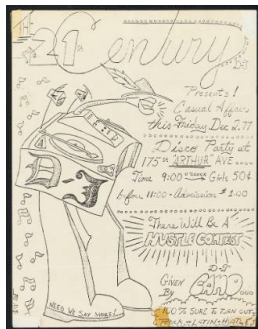 21st Century
Presents!
Casual Affair
this Friday Dec 2, 77
Disco Party at
175 st "ARTHUR" AVE
Time 9:00 Girls 50¢
before 11:00 - Admission $1.00
There Will Be A
HUSTLE CONTEST
D-J
GIVEN
By
NEED WE SAY MORE!
100% SURE TO TURN OUT
LATIN - HUSTLE